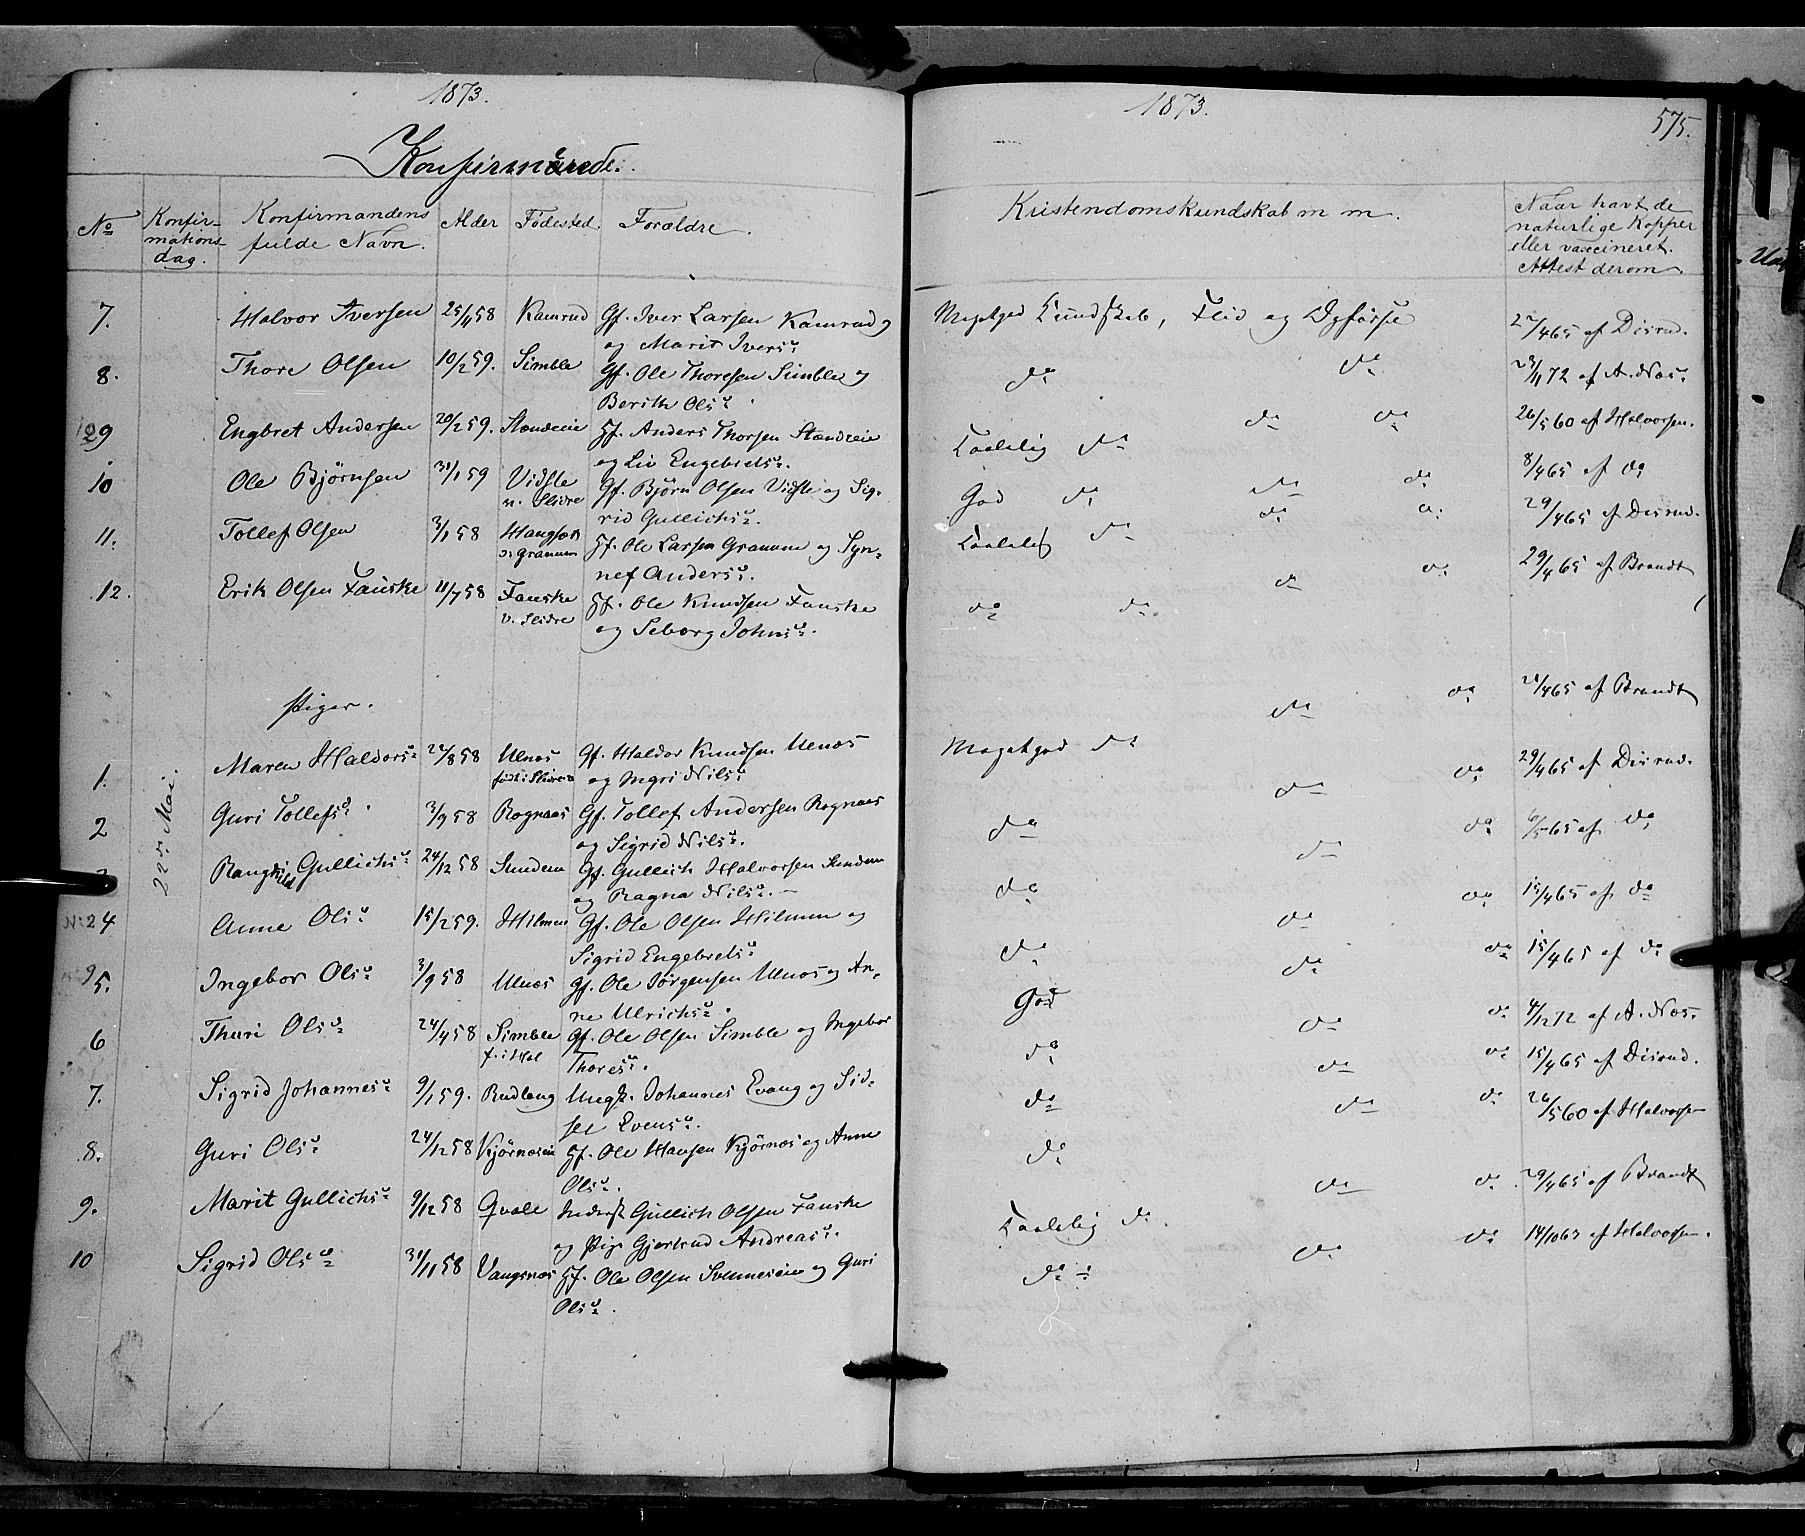 1873.
Konfirmerede.
No
Konfir-
mations-
dag.
Konfirmandens
fulde Navn.
Alder
Fødested.
Forældre.
7. Halvor Iversen 25/11 58 Kamrud Gf. Iver Larsen Kamrud
og Marit Iversd.
8. Thore Olsen 10/2 59. Simble Gf. Ole Thoresen Simble og
Berith Olsd.
9 Engbret Andersen 20/2 59. Stændeie Hf. Anders Thorsen Stændeeie
og Liv Engebretsd.
10 Ole Bjørnsen 31/1 59 Vidste Gf. Bjørn Olsen Vidste og Sig-
v. Slidre rid Gullichsd.
11. Tollef Olsen 3/1 58 Hf. Ole Larsen Granum og Syn-
v. Granum nef Andersd.
12. Erik Olsen Fauske 11/7 58 Fauske Hf. Ole Knudsen Fauske
V. Slidre og Seborg Johnsd.
Piger.
22de Mai.
1. Maren Haldorsd. 22/8 58 Ulnæs Gf. Haldor Knudsen Ulnæs
født i Slidre og Ingri Nilsd.
2 Guri Tollefsd. 3/9 58 Rognaas Gf. Tollef Andersen Rognaas
og Sigrid Nilsd.
3 Ranghild Gullichsd. 24/12 58 Sundem Gf. Gullich Halvorsen Sundem
og Ragna Nilsd.
4 Anne Olsd. 15/2 59. Hilmen Gf. Ole Olsen Hilmen og
Sigrid Engebretsd.
5. Ingebor Olsd. 3/9 58 Ulnæs Gf. Ole Jørgensen Ulnæs og An-
ne Ulrichsd.
6 Thuri Olsd. 24/4 58 Simble Gf. Ole Olsen Simble og Ingebor
f. i Hol Thoresd.
7. Sigrid Johannesd. 9/1 59. Rudlang Ungk. Johannes Evang og Sid-
sel Evensd.
8. Guri Olsd. 24/12 58 Kjørnæseie Hf. Ole Hansen Kjørnæs og Anne
Olsd.
9. Marit Gullichsd. 9/12 58 Qvale Inderst Gullich Olsen Fauske
og Pige Gjertrud Andreasd.
10 Sigrid Olsd. 31/11 58 Vangsnæs Hf. Ole Olsen Svenneseie og Guri
Olsd.
1873.
575.
Kristendomskundskab m m.
Naar havt de
naturlige Kopper
eller vaccineret.
Attest derom
Megetgod Kundskab, Flid og Opførsel 25/4 65 af Disrud.
do do 23/11 72 af A. Næs.
Taalelig do do do 26/5 60 af Halvorsen.
God do do do 8/4 65 af do
Taalelig do do do 29/4 65 af Disrud.
do do do do 29/4 65 af Brandt
Megetgod do do do 21/4 65 af Brandt
do do do 29/4 65 af Disrud.
do do do 6/5 65 af do
do do do 15/4 65 af do
God do do 15/4 65 af do
do do do 4/12 72 af A. Næs.
do do do 15/4 65 af Disrud.
do do do 26/5 60 af Halvorsen
Taalelig do. do do 29/4 65 af Brandt
do do do 14/10 63 af Halvorsen.